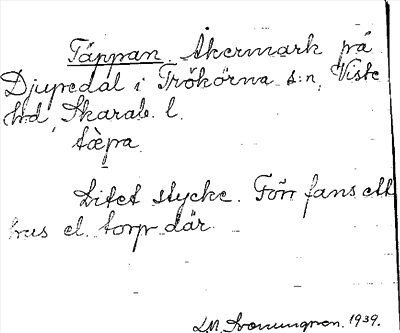 Täppan. Åkermark på
Djupedal i Trökörna s:n, Viste
hd, Skarab. l.
tæpa.
Litet stycke. Förr fans ett
hus el. torp där.
1939.